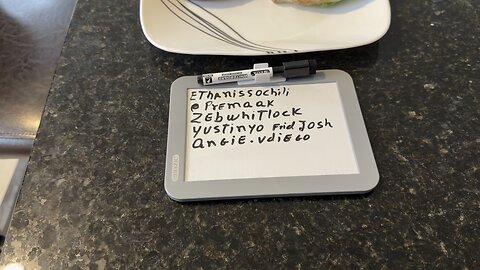 EThanissochili
@Premaak
ZEbwhiTlock
YUSTINYO FriedJosh
anGiE.vdiEGO